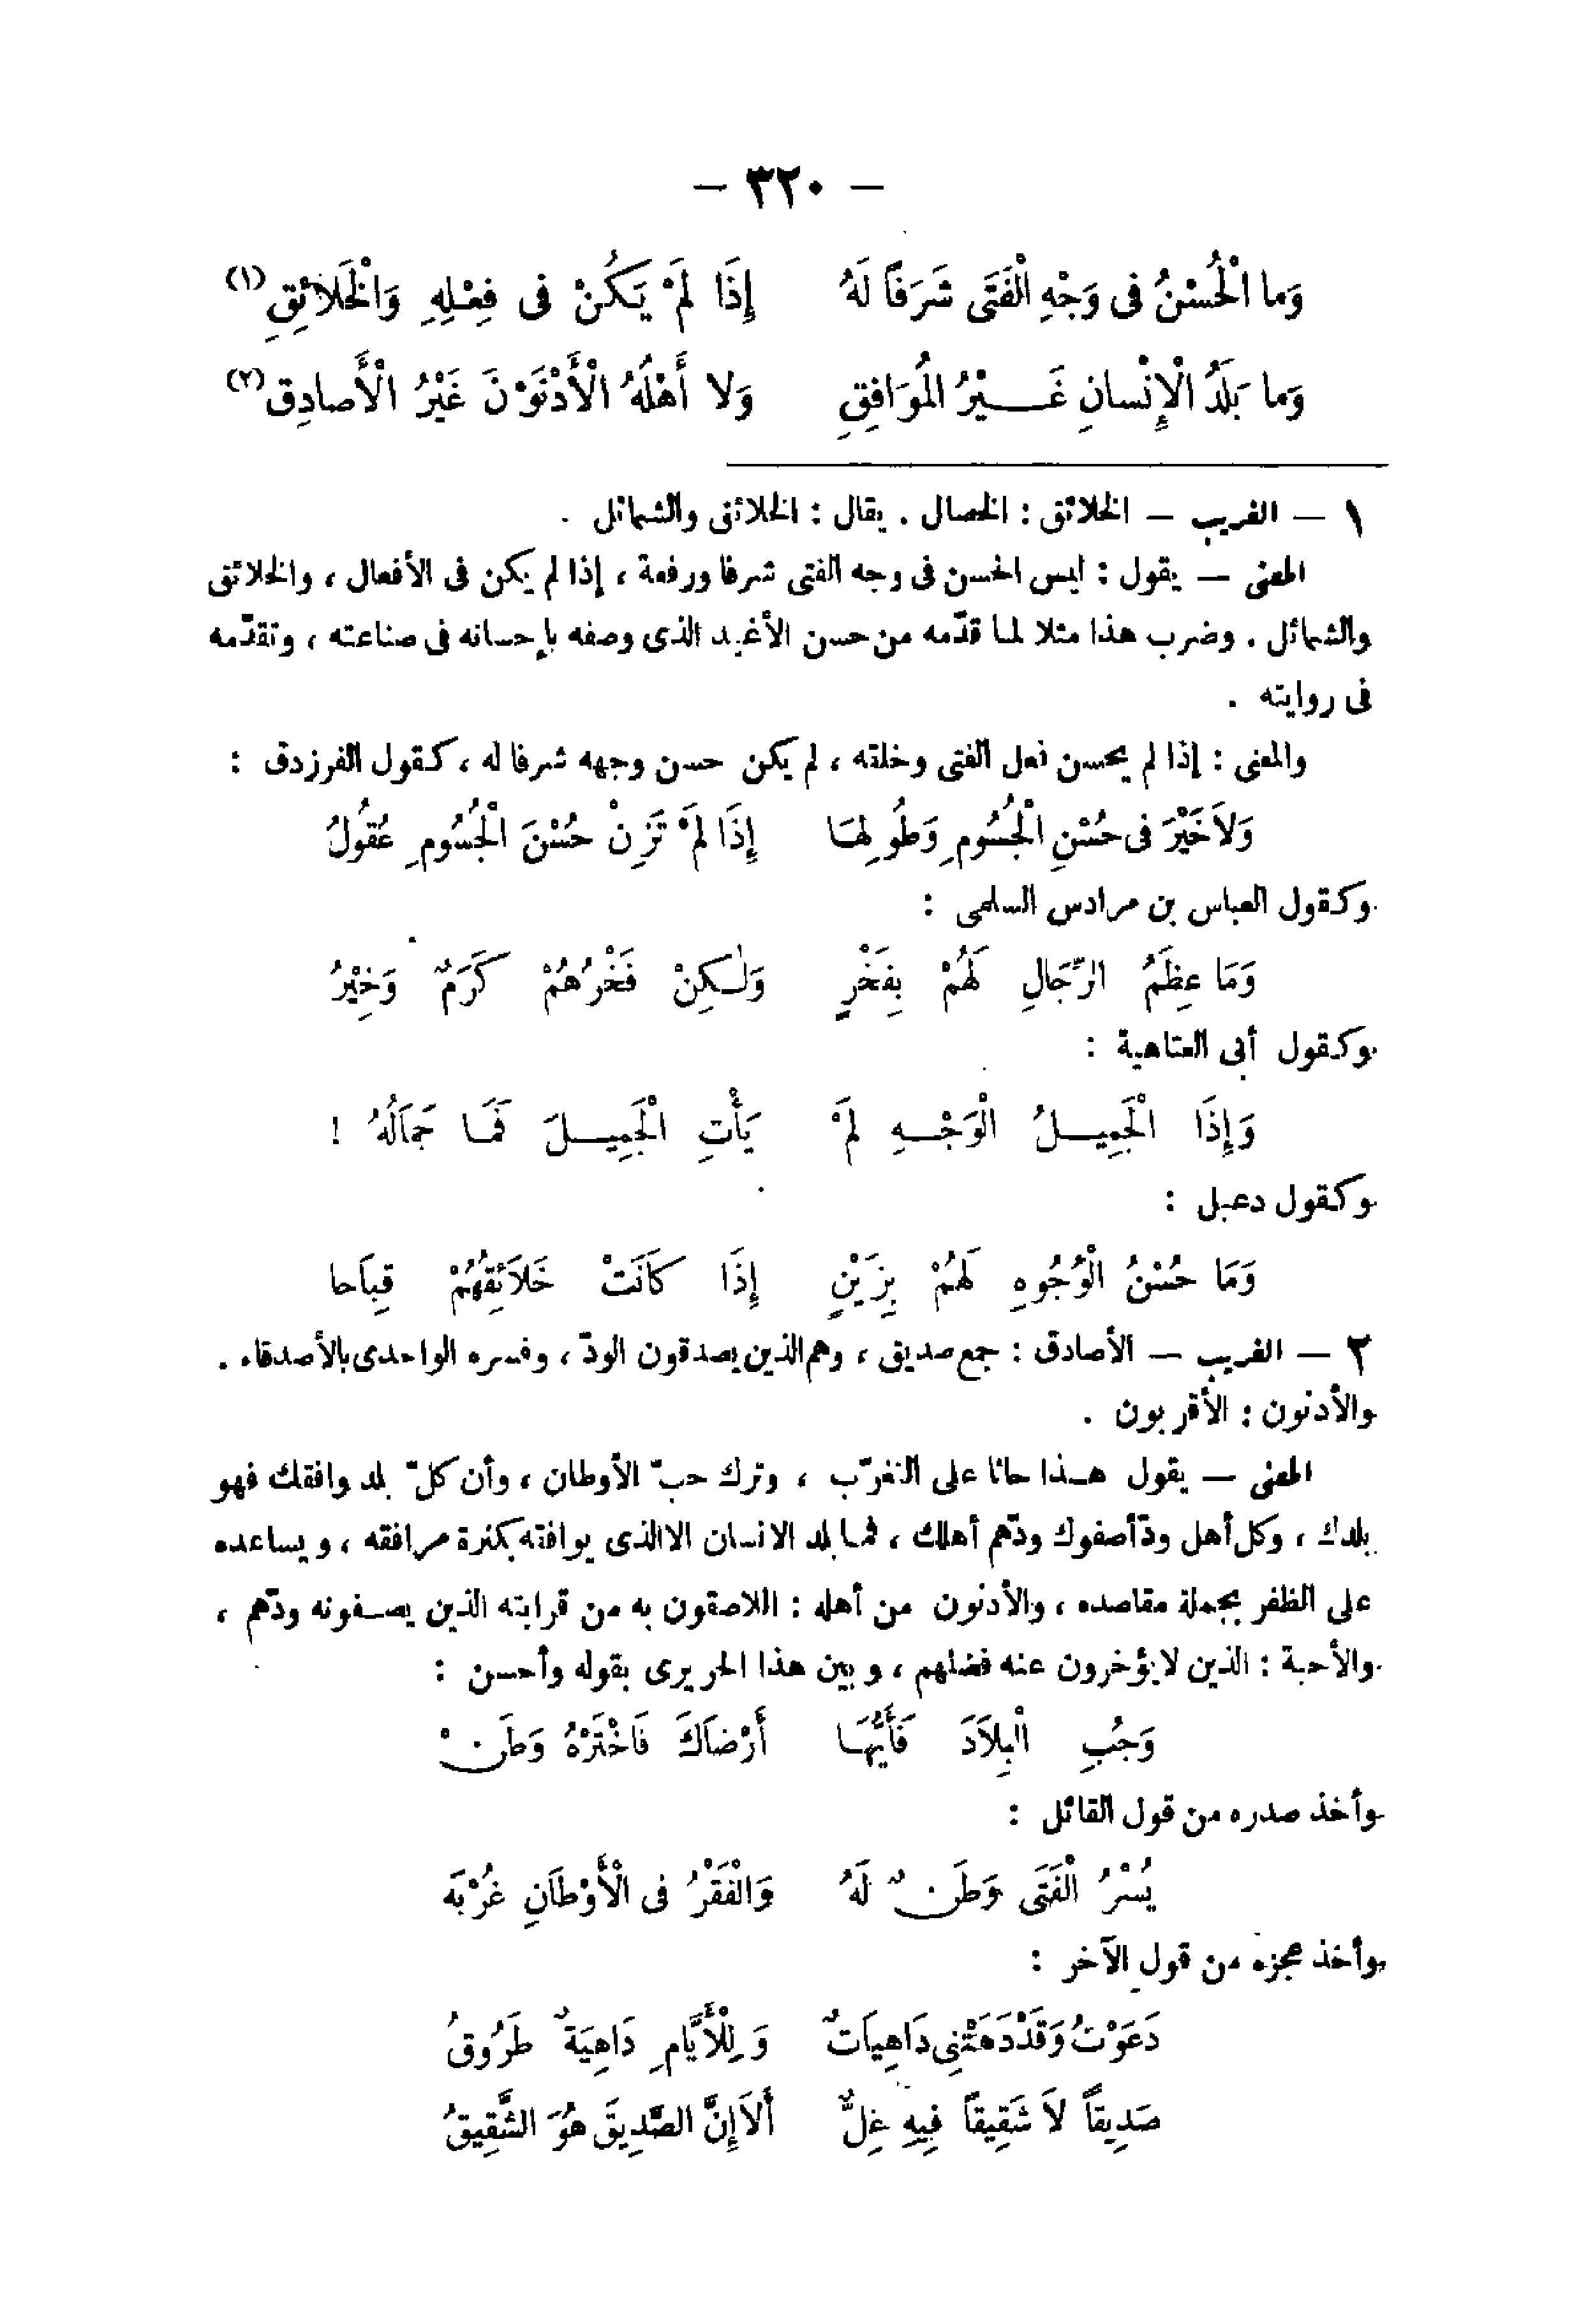 — ٣٢٠ —
وَما الْحُسْنُ فى وَجْهِ الْفَتَى شَرَفًا لَهُ إِذَا لَمْ يَكُنْ فى فِعْلِهِ وَالْخَلائِقِ (١)
وَما بَلَدُ الْإِنْسانِ غَـــيْرُ الْمُوَافِقِ وَلا أَهْلُهُ الْأَدْنَوْنَ غَيْرُ الْأَصادِقِ (٢)
١ — الغريب — الخلائق : الخصال . يقال : الخلائق والشمائل .
المعنى — يقول : ليس الحسن فى وجه الفتى شرفا ورفعة ، إذا لم يكن فى الأفعال ، والخلائق
والشمائل . وضرب هذا مثلا لما قدّمه من حسن الأغيد الذى وصفه بإحسانه فى صناعته ، وتقدّمه
فى روايته .
والمعنى : إذا لم يحسن فعل الفتى وخلقه ، لم يكن حسن وجهه شرفا له ، كقول الفرزدق :
وَلاَ خَيْرَ فى حُسْنِ الْجُسُومِ وَطُولِهَا إِذَا لَمْ تَزِنْ حُسْنَ الْجُسُومِ عُقُولُ
وكقول العباس بن مرادس السلمى :
وَمَا عِظَمُ الرِّجَالِ لَهُمْ بِفَخْرٍ وَلٰـكِنْ فَخْرُهُمْ كَرَمٌ وَخِيْرُ
وكقول أبى العتاهية :
وَإِذَا الْجَمِيـــلُ الْوَجْـــهِ لَمْ يَأْتِ الْجَمِيـــلَ فَمَـا جَمَالُهُ !
وكقول دعبل :
وَمَا حُسْنُ الْوُجُوهِ لَهُمْ بِزَيْنٍ إِذَا كَانَتْ خَلاَئِقُهُمْ قِبَاحا
٢ — الغريب — الأصادق : جمع صديق ، وهم الذين يصدقون الودّ ، وفسره الواحدى بالأصدقاء .
والأدنون : الأقربون .
المعنى — يقول هـذا حاثا على التغرّب ، وترك حبّ الأوطان ، وأن كلّ بلد وافقك فهو
بلدك ، وكل أهل ودّ أصفوك ودّهم أهلك ، فما بلد الانسان الا الذى يوافقه بكثرة مرافقه ، ويساعده
على الظفر بجملة مقاصده ، والأدنون من أهله : اللاصقون به من قرابته الذين يصـفونه ودّهم ،
والأحبة : الذين لا يؤخرون عنه فضلهم ، وبين هذا الحريرى بقوله وأحسن :
وَجُبِ الْبِلاَدَ فَأَيُّهَـا أَرْضَاكَ فَاخْتَرْهُ وَطَنْ
وأخذ صدره من قول القائل :
يُسْرُ الْفَتَى وَطَنٌ لَهُ وَالْفَقْرُ فى الْأَوْطَانِ غُرْبَه
وأخذ عجزه من قول الآخر :
دَعَوْتُ وَقَدْ دَهَتْنِى دَاهِيَاتٌ وَلِلْأَيَّامِ دَاهِيَةٌ طَرُوقُ
صَدِيقًا لاَ شَقِيقًا فِيهِ غِلٌّ أَلاَ إِنَّ الصَّدِيقَ هُوَ الشَّقِيقُ